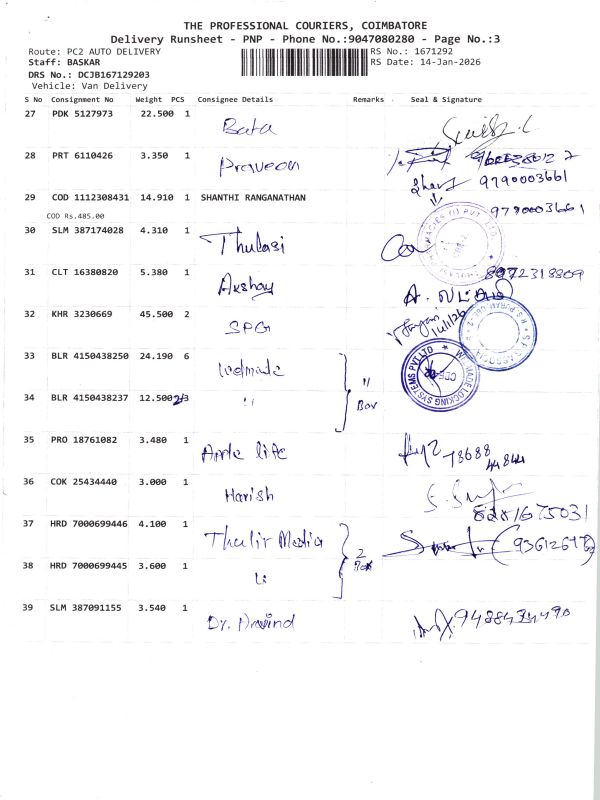 THE PROFESSIONAL COURIERS, COIMBATORE
Delivery Runsheet - PNP - Phone No.:9047080280 - Page No.:3
Route: PC2 AUTO DELIVERY RS No.: 1671292
Staff: BASKAR RS Date: 14-Jan-2026
DRS No.: DCJB167129203
Vehicle: Van Delivery
S No Consignment No Weight PCS Consignee Details Remarks Seal & Signature
27 PDK 5127973 22.500 1 Bata
28 PRT 6110426 3.350 1 Praveen
9790003661
29 COD 1112308431 14.910 1 SHANTHI RANGANATHAN 9790003661
COD Rs.485.00
30 SLM 387174028 4.310 1 Thulasi
31 CLT 16380820 5.380 1 Akshay 8972318809
32 KHR 3230669 45.500 2 SPG
33 BLR 4150438250 24.190 6
34 BLR 4150438237 12.500 "
35 PRO 18761082 3.480 1 Apple life 78688
44844
36 COK 25434440 3.000 1 Harish
8281675031
37 HRD 7000699446 4.100 1 Thulir Media 2
38 HRD 7000699445 3.600 1 "
39 SLM 387091155 3.540 1 Dr. Aravind 9488434490